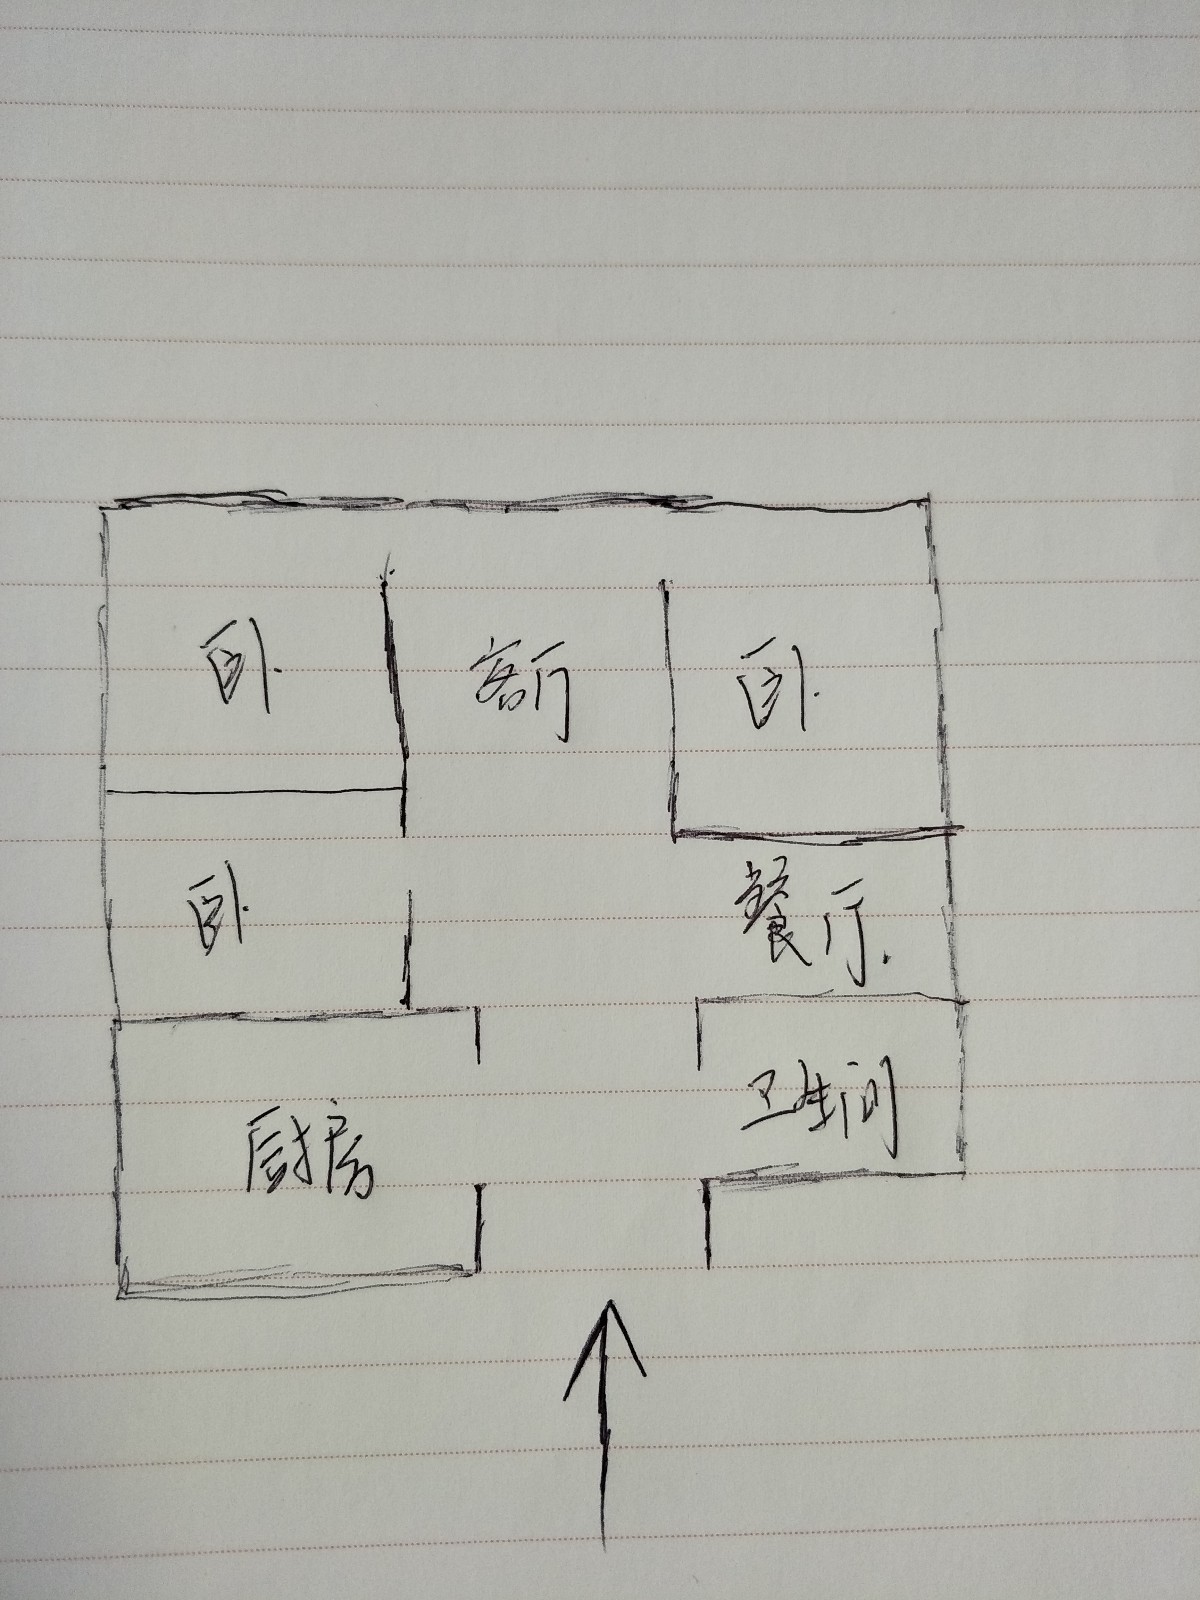 卧 客厅 卧
卧 餐厅
厨房 卫生间